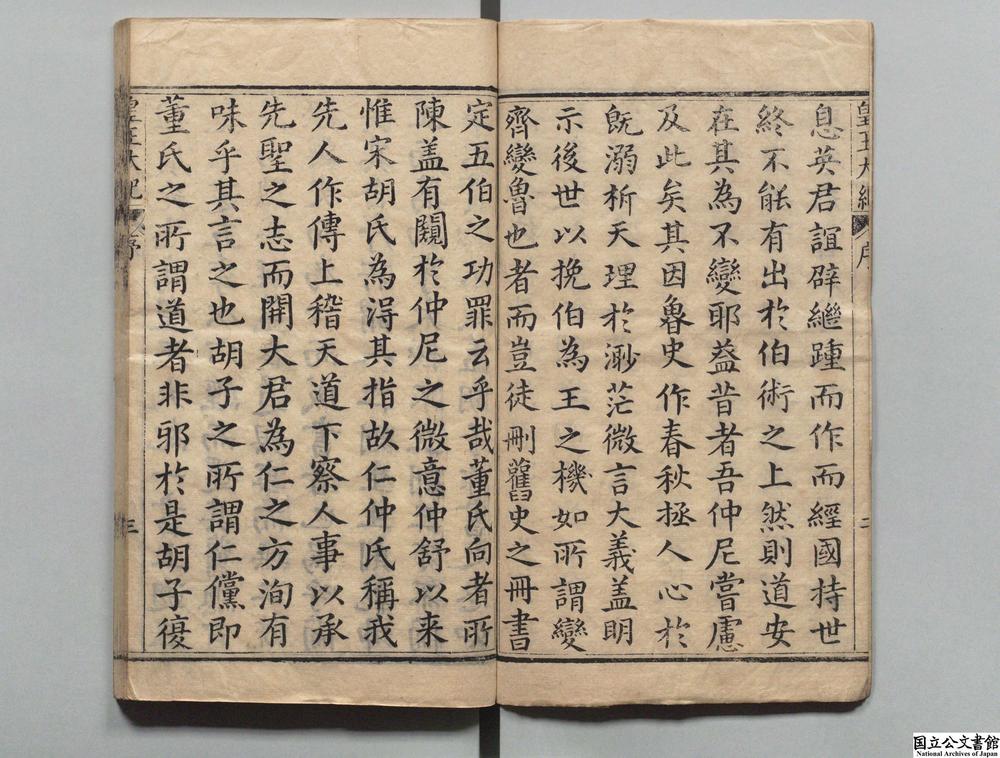 皇王大紀 序 二
息英君誼辟繼踵而作而經國持世
終不能有出於伯術之上然則道安
在其為不變耶葢昔者吾仲尼嘗慮
及此矣其因魯史作春秋拯人心於
旣溺析天理於渺茫微言大義盖明
示後世以挽伯為王之機如所謂變
齊變魯也者而豈徒刪舊史之冊書
定五伯之功罪云乎哉董氏向者所
陳盖有闚於仲尼之微意仲舒以来
惟宋胡氏為淂其指故仁仲氏稱我
先人作傳上稽天道下察人事以承
先聖之志而開大君為仁之方洵有
味乎其言之也胡子之所謂仁儻即
董氏之所謂道者非邪於是胡子復
皇王大紀 序 三
国立公文書館
National Archives of Japan